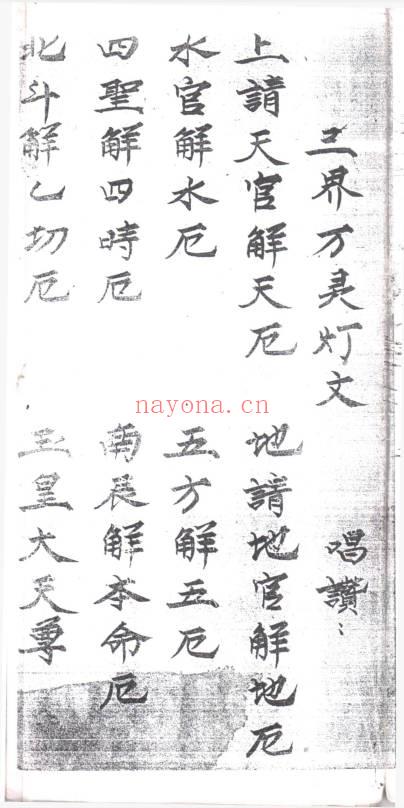 三界万灵灯文 唱讚:
上請天官解天厄 地請地官解地厄
水官解水厄 五方解五厄
四聖解四時厄 南辰解本命厄
北斗解乙切厄 玉皇大天尊
nayona.cn